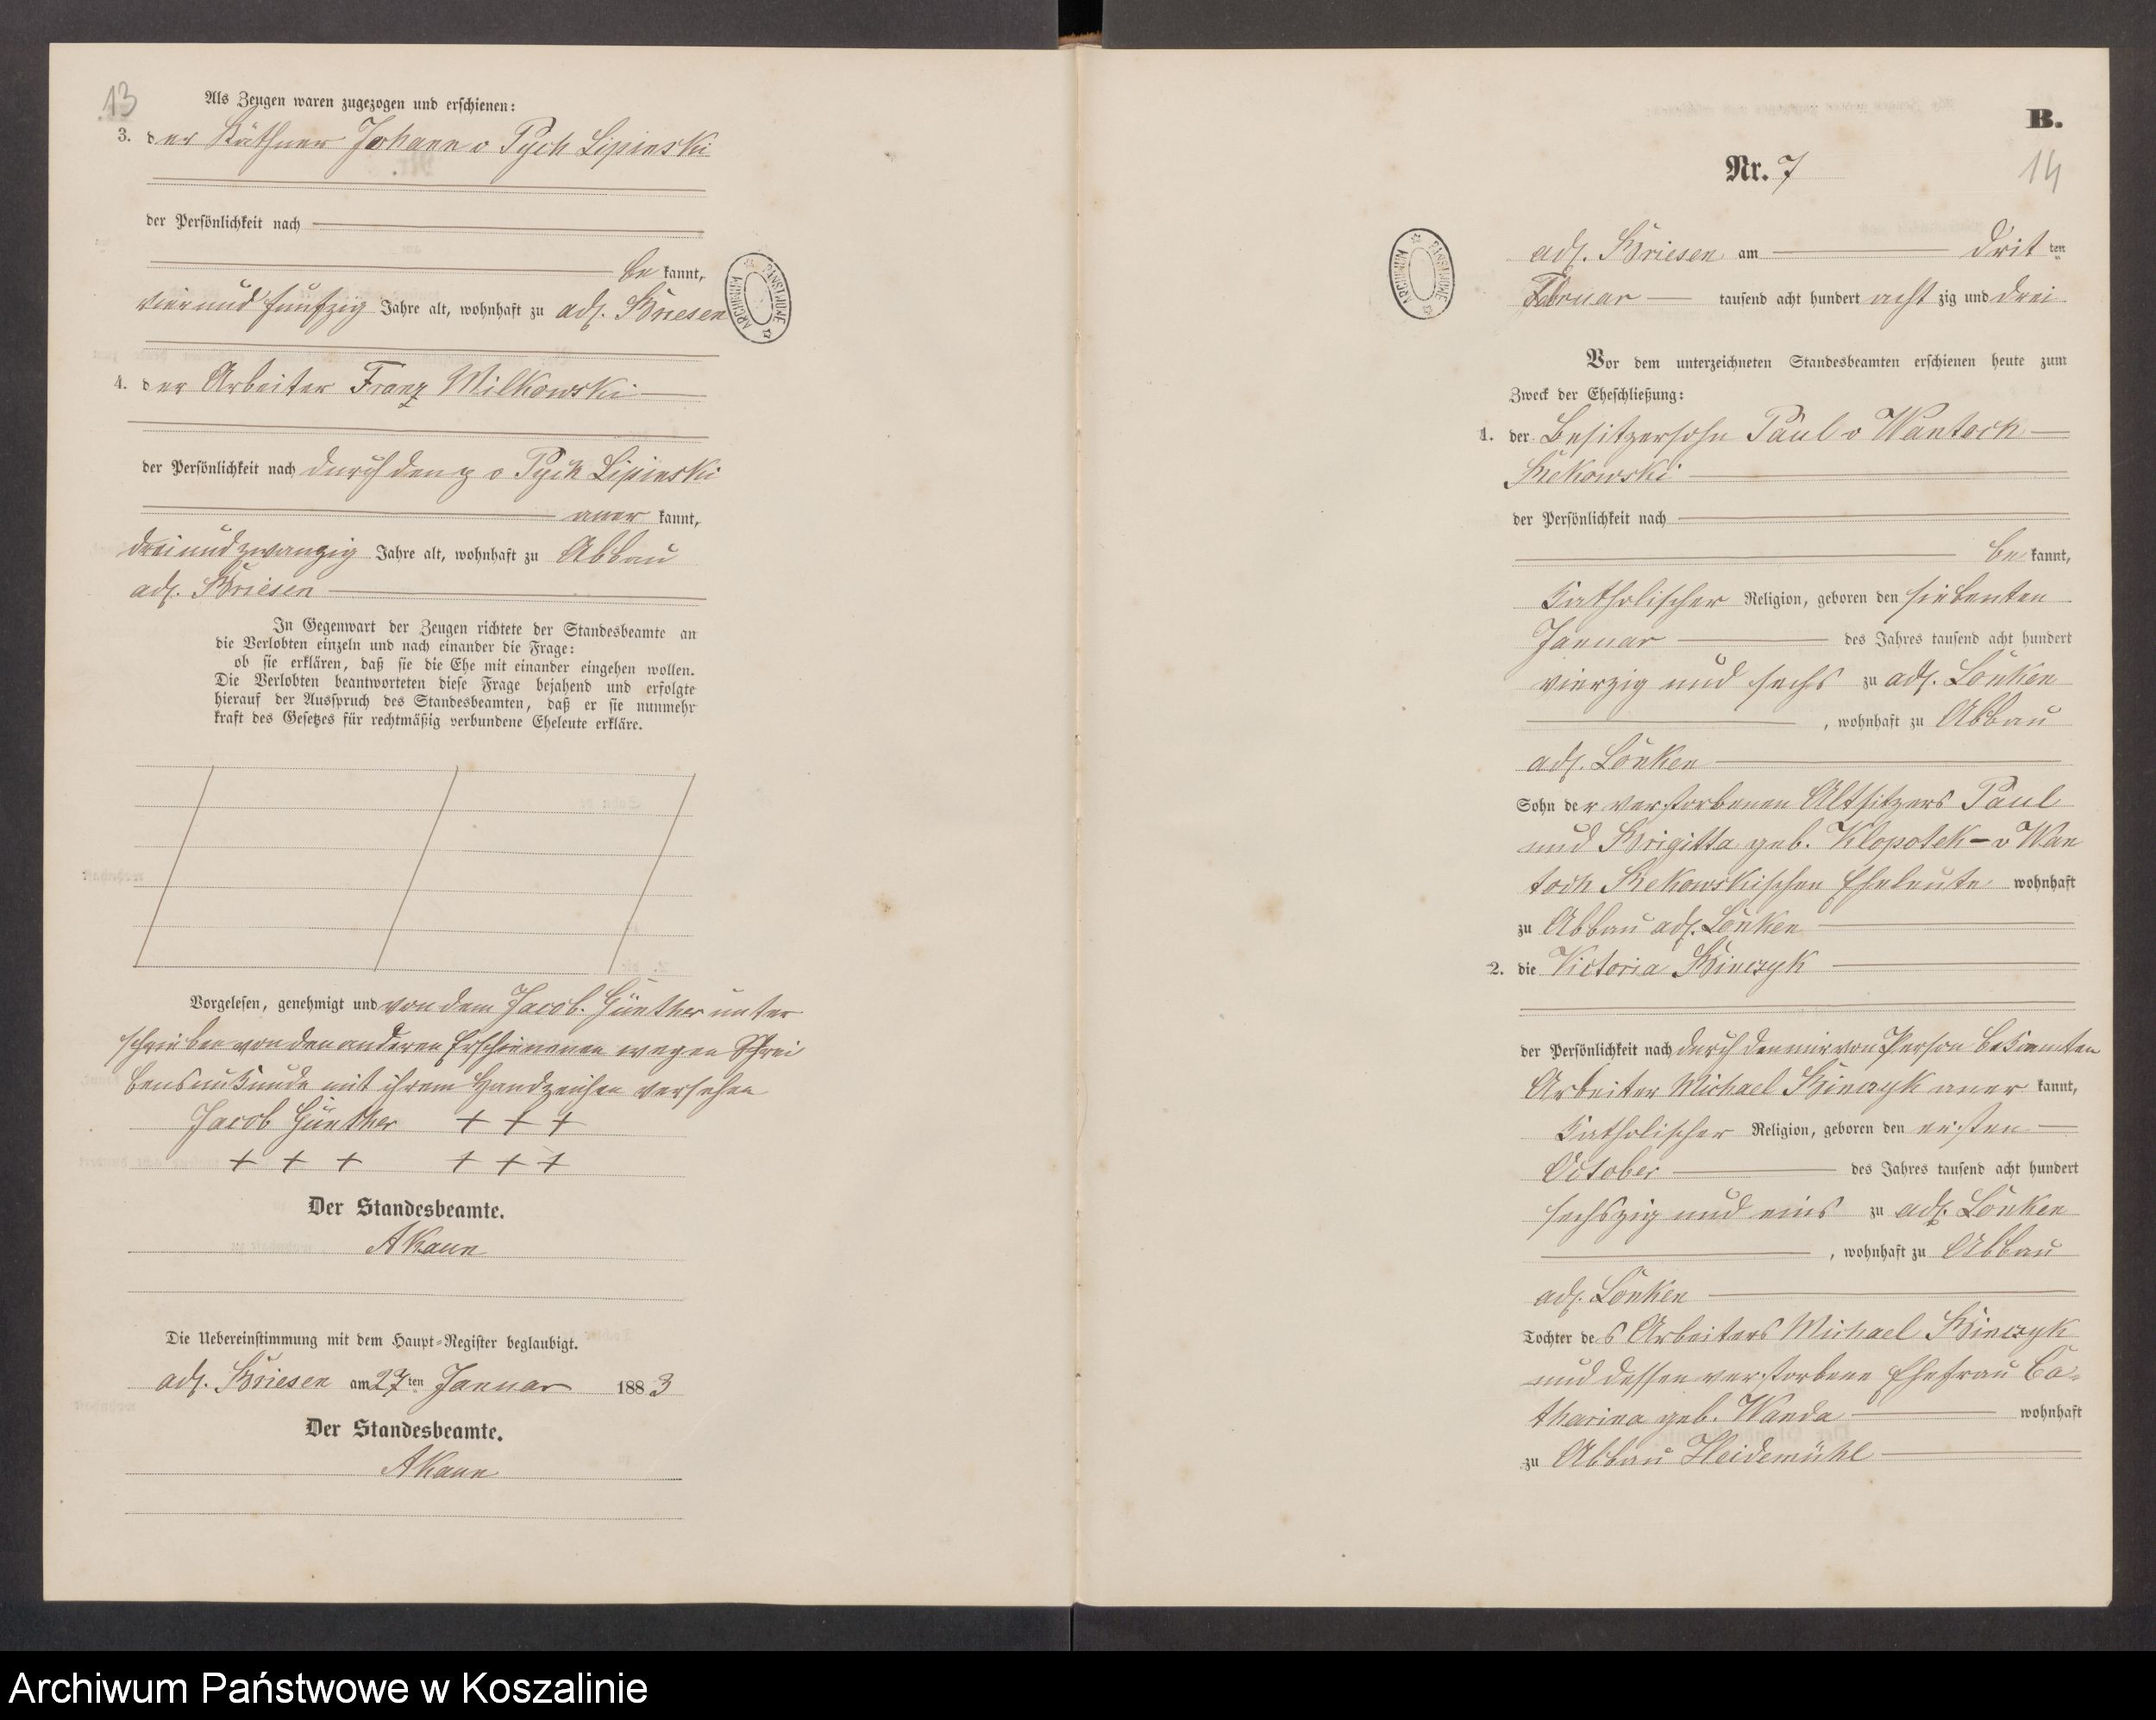 13
Als Zeugen waren zugezogen und erschienen:
3. der Käthner Johann v Pych Lipinski
der Persönlichkeit nach
be kannt,
vierundfunfzig Jahre alt, wohnhaft zu adl. Briesen
4. der Arbeiter Franz Milkowski
der Persönlichkeit nach durch den p v Pych Lipinski
aner kannt,
dreiundzwanzig Jahre alt, wohnhaft zu Abbau
adl. Briesen
In Gegenwart der Zeugen richtete der Standesbeamte an
die Verlobten einzeln und nach einander die Frage:
ob sie erklären, daß sie die Ehe mit einander eingehen wollen.
Die Verlobten beantworteten diese Frage bejahend und erfolgte
hierauf der Ausspruch des Standesbeamten, daß er sie nunmehr
kraft des Gesetzes für rechtmäßig verbundene Eheleute erkläre.
Vorgelesen, genehmigt und von dem Jacob Günther unter
schrieben von den anderen Erschienenen wegen Schrei
bensunkunde mit ihrem Handzeichen versehen
Jacob Günther + + +
+ + + + + +
Der Standesbeamte.
A Kaun
Die Uebereinstimmung mit dem Haupt-Register beglaubigt.
adl. Briesen am 27 ten Januar 1883
Der Standesbeamte.
A Kaun
ARCHIWUM PAŃSTWOWE
B.
14
Nr. 7
ARCHIWUM PAŃSTWOWE
adl. Briesen am drit ten
Februar tausend acht hundert acht zig und drei
Vor dem unterzeichneten Standesbeamten erschienen heute zum
Zweck der Eheschließung:
1. der Besitzersohn Paul v Wantoch
Rekowski
der Persönlichkeit nach
be kannt,
katholischer Religion, geboren den siebenten
Januar des Jahres tausend acht hundert
vierzig und sechs zu adl. Lonken
, wohnhaft zu Abbau
adl. Lonken
Sohn der verstorbenen Altsitzers Paul
und Brigitta geb. Klopotek - v Wan
toch Rekowskischen Eheleute wohnhaft
zu Abbau adl. Lonken
2. die Victoria Binczyk
der Persönlichkeit nach durch den mir von Person bekannten
Arbeiter Michael Binczyk aner kannt,
katholischer Religion, geboren den ersten
October des Jahres tausend acht hundert
sechszig und eins zu adl. Lonken
, wohnhaft zu Abbau
adl. Lonken
Tochter des Arbeiters Michael Binczyk
und dessen verstorbene Ehefrau Ca-
tharina geb. Wanda wohnhaft
zu Abbau Heidemühl
Archiwum Państwowe w Koszalinie